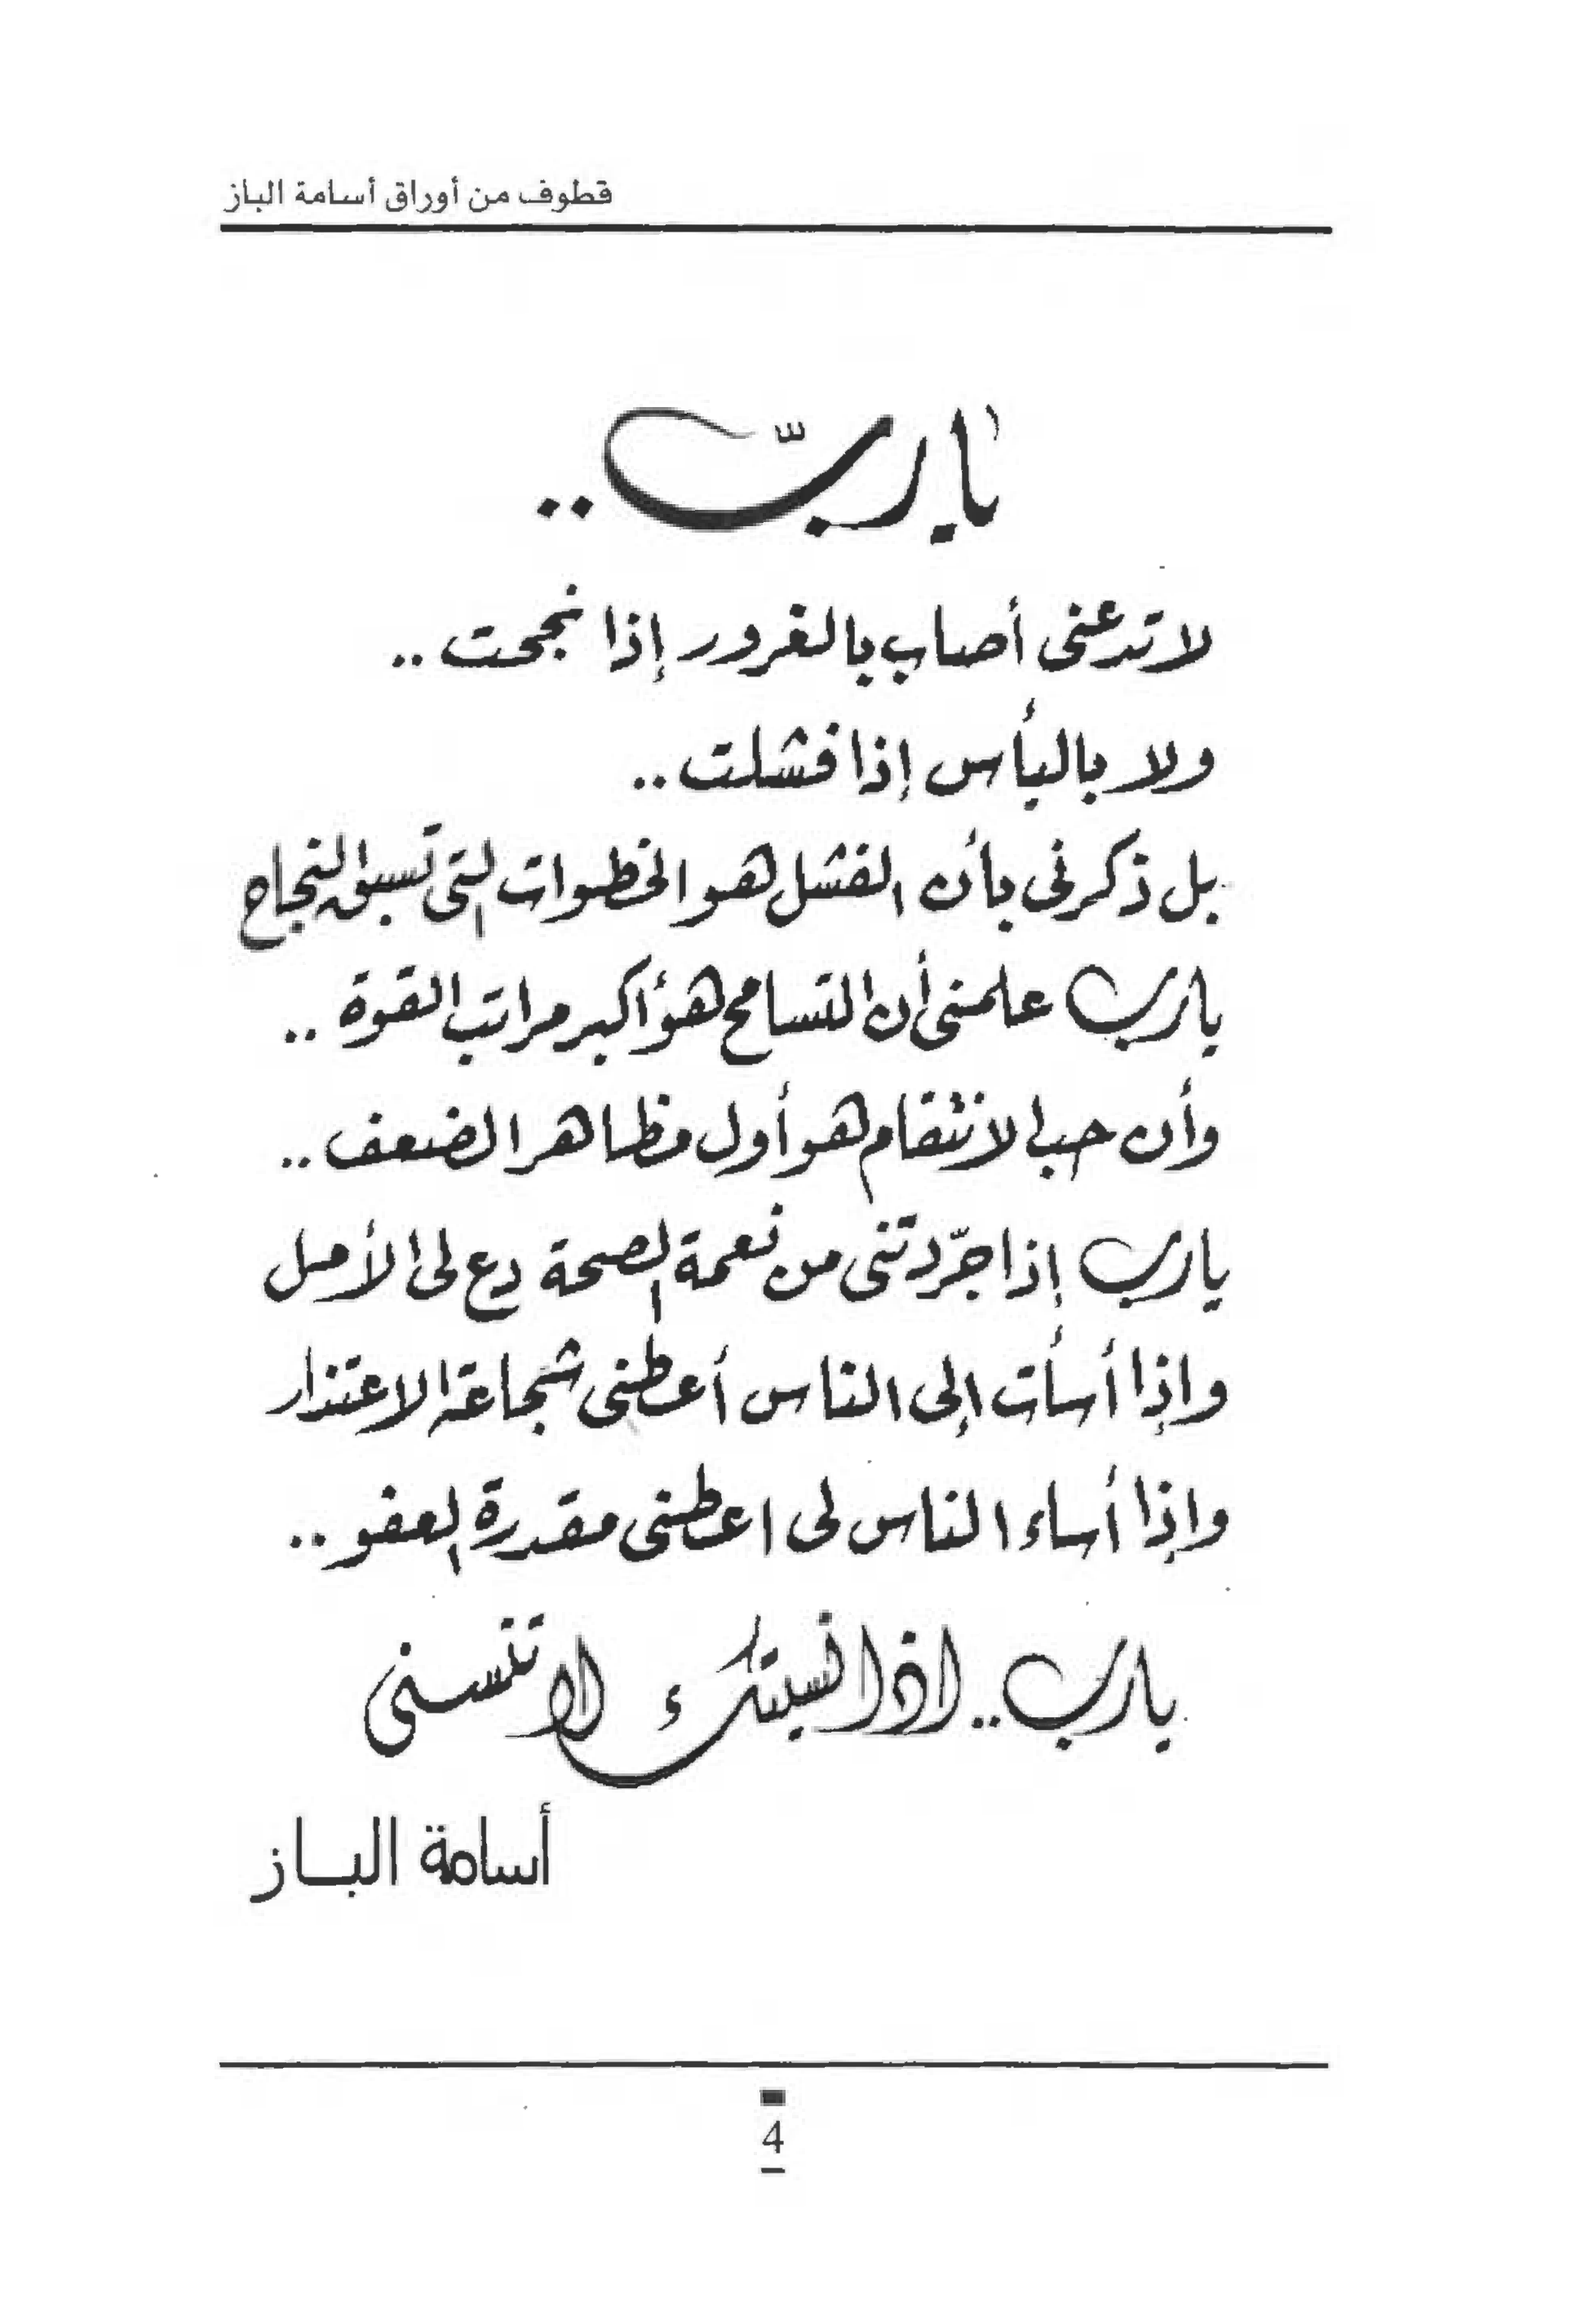 قطوف من أوراق أسامة الباز
يارب ..
لا تدعنى أصاب بالغرور إذا نجحت ..
ولا باليأس إذا فشلت ..
بل ذكرنى بأن الفشل هو الخطوات التى تسبق النجاح
يارب علمنى أن التسامح هو أكبر مراتب القوة ..
وأن حب الانتقام هو أول مظاهر الضعف ..
يارب إذا جرّدتنى من نعمة الصحة دع لى الأمل
وإذا أسأت إلى الناس أعطنى شجاعة الاعتذار
وإذا أساء الناس لى اعطنى مقدرة العفو ..
يارب .. اذا نسيتك لا تنسنى
أسامة البـاز
4